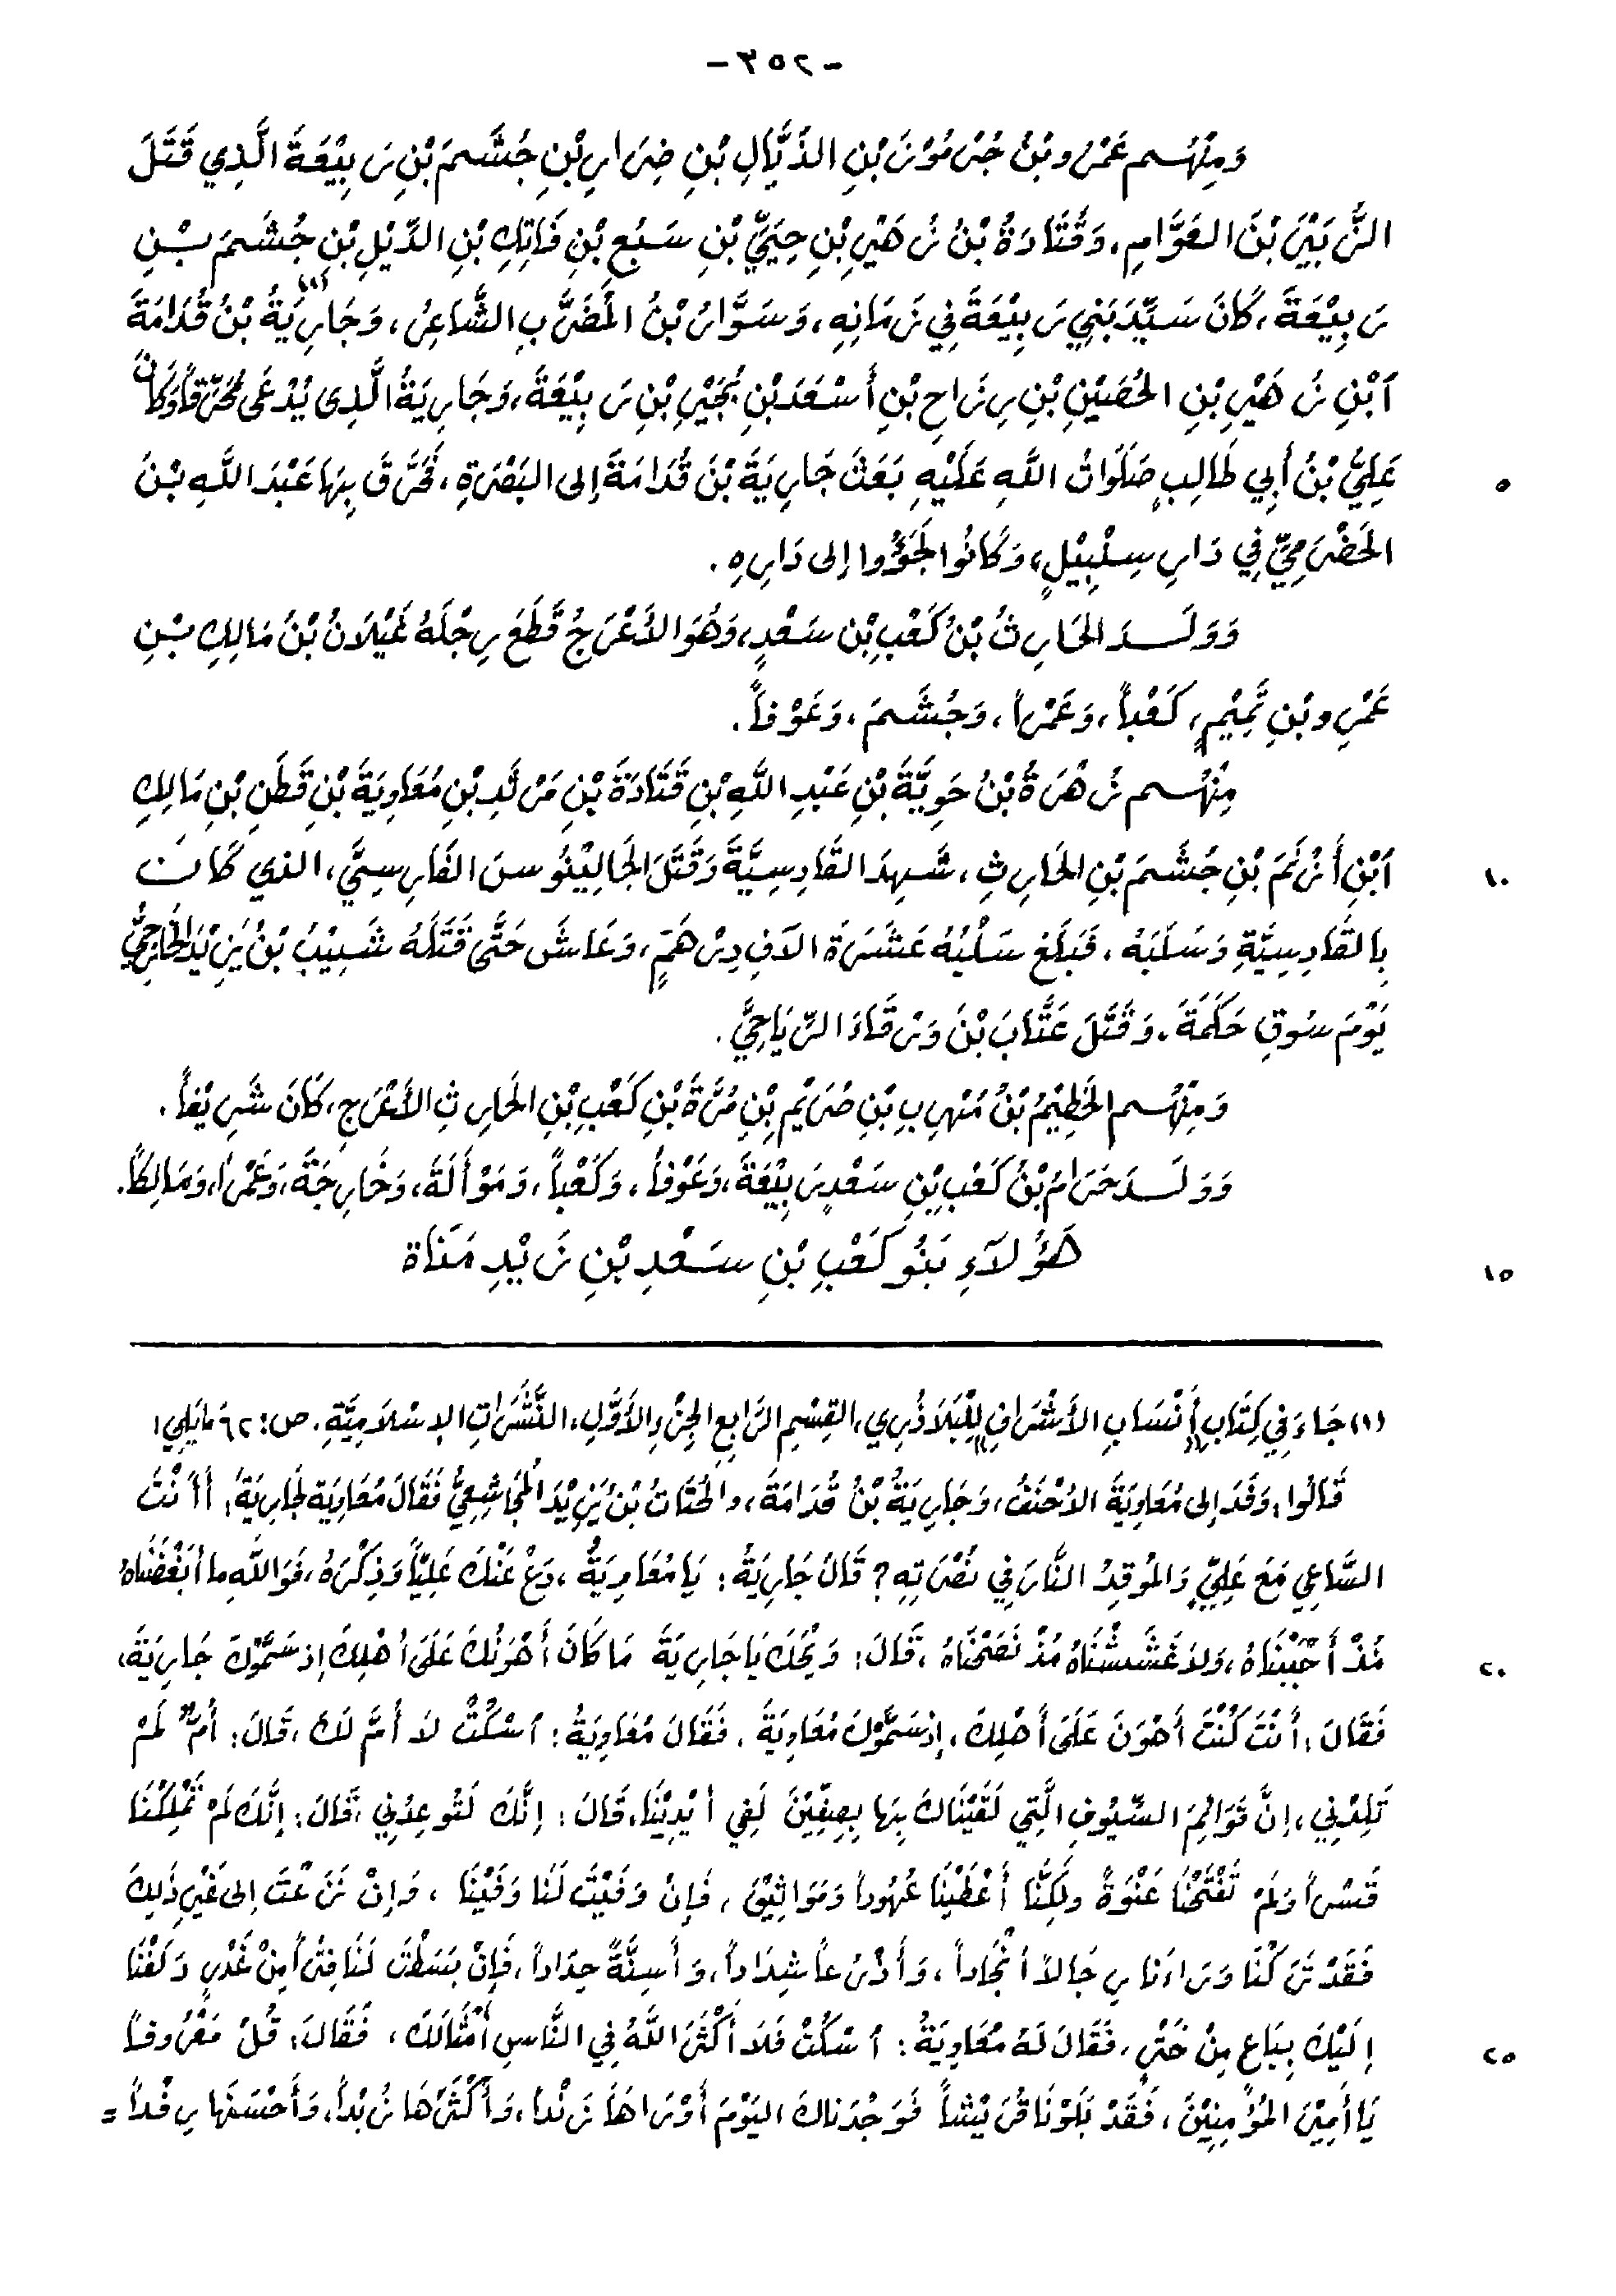 - ٣٥٢ -
وَمِنْهُم عَمْرُو بْنُ جُرْمُوْزَ بْنِ الذَّيَّالِ بْنِ ضِرَارِ بْنِ جُشَمَ بْنِ رَبِيْعَةَ الَّذِي قَتَلَ
الزُّبَيْرَ بْنَ العَوَّامِ، وَقَتَادَةُ بْنُ زُهَيْرِ بْنِ حِيَيِّ بْنِ سَبُعِ بْنِ فَاتِكِ بْنِ الدِّيْلِ بْنِ جُشَمَ بْنِ
رَبِيْعَةَ، كَانَ سَيِّدَ بَنِي رَبِيْعَةَ فِي زَمَانِهِ، وَسَوَّارُ بْنُ المُضَرَّبِ الشَّاعِرُ، وَجَارِيَةُ(١) بْنُ قُدَامَةَ
ٱبْنِ زُهَيْرِ بْنِ الحُصَيْنِ بْنِ رِزَاحِ بْنِ أَسْعَدَ بْنِ بُجَيْرِ بْنِ رَبِيْعَةَ، وَجَارِيَةُ الَّذِي يُدْعَى مُحَرِّقاً وَكَانَ
٥ عَلِيُّ بْنُ أَبِي طَالِبٍ صَلَوَاتُ اللَّهِ عَلَيْهِ بَعَثَ جَارِيَةَ بْنَ قُدَامَةَ إلى البَصْرَةِ، فَحَرَّقَ بِهَا عَبْدَ اللَّهِ بْنَ
الحَضْرَمِيِّ فِي دَارِ سِلْبِيْلٍ، وَكَانُوا لَجَؤُوا إلى دَارِهِ.
وَوَلَدَ الحَارِثُ بْنُ كَعْبِ بْنِ سَعْدٍ، وَهُوَ الأَعْرَجُ قَطَعَ رِجْلَهُ غَيْلَانُ بْنُ مَالِكِ بْنِ
عَمْرِو بْنِ تَمِيْمٍ، كَعْباً، وَعَمْراً، وَجُشَمَ، وَعَوْفاً.
مِنْهُم زُهْرَةُ بْنُ حَوِيَّةَ بْنِ عَبْدِ اللَّهِ بْنِ قَتَادَةَ بْنِ مَرْثَدِ بْنِ مُعَاوِيَةَ بْنِ قَطَنِ بْنِ مَالِكِ
١٠ ٱبْنِ أَزْنَمَ بْنِ جُشَمَ بْنِ الحَارِثِ، شَهِدَ القَادِسِيَّةَ وَقَتَلَ الجَالِيْنُوسَ الفَارِسِيَّ، الذي كَانَ
بِالقَادِسِيَّةِ وَسَلَبَهُ، فَبَلَغَ سَلْبُهُ عَشَرَةَ الآفِ دِرْهَمٍ، وَعَاشَ حَتَّى قَتَلَهُ شَبِيْبُ بْنُ يَزِيْدَ الخَارِجِيُّ
يَوْمَ سُوقِ حَكَمَةَ. وَقَتَلَ عَتَّابَ بْنَ وَرْقَاءَ الرِّيَاحِيَّ.
وَمِنْهُم الخَطِيْمُ بْنُ مَنْهِبِ بْنِ صُرَيْمِ بْنِ مُرَّةَ بْنِ كَعْبِ بْنِ الحَارِثِ الأَعْرَجِ، كَانَ شَرِيْفاً.
وَوَلَدَ حَرَامُ بْنُ كَعْبِ بْنِ سَعْدٍ رَبِيْعَةَ، وَعَوْفاً، وَكَعْباً، وَمَوْأَلَةَ، وَخَارِجَةَ، وَعَمْراً، وَمَالِكاً.
١٥ هَؤُلآءِ بَنُو كَعْبِ بْنِ سَعْدِ بْنِ زَيْدِ مَنَاة
(١) جَاءَ فِي كِتَابِ «أَنْسَابِ الأَشْرَافِ» لِلْبَلَاذُرِي، القِسْمِ الرَّابِعِ الجِزْءِ الأَوَّلِ، النَّشَرَاتِ الإِسْلَامِيَّةِ. ص: ٦٢ مَا يَلِي:
قَالُوا: وَفَدَ إلى مُعَاوِيَةَ الأَحْنَفُ، وَجَارِيَةُ بْنُ قُدَامَةَ، والحُتَاتُ بْنُ يَزِيْدَ المُجَاشِعِيُّ فَقَالَ مُعَاوِيَة لِجَارِيَةَ: أأَنْتَ
السَّاعِي مَعَ عَلِيٍّ وَالمُوقِدُ النَّارَ فِي نُصْرَتِهِ؟ قَالَ جَارِيَةُ: يَا مُعَاوِيَةُ، دَعْ عَنْكَ عَلِيّاً وَذِكْرَهُ، فَوَاللَّهِ ما أبْغَضْنَاهُ
٢٠ مُذْ أَحْبَبْنَاهُ، وَلَا غَشَشْنَاهُ مُذْ نَصَحْنَاهُ، قَالَ: وَيْحَكَ يَا جَارِيَةَ مَا كَانَ أَهْوَنَكَ عَلَى أهْلِكَ إذ سَمَّوْكَ جَارِيَةَ،
فَقَالَ: أَنْتَ كُنْتَ أَهْوَنَ عَلَى أَهْلِكَ، إذ سَمَّوْكَ مُعَاوِيَةَ. فَقَالَ مُعَاوِيَةُ: ٱسْكُتْ لَا أُمَّ لَكَ، قَالَ: أُمٌّ لَمْ
تَلِدْنِي، إنَّ قَوَائِمَ السِّيُوفِ الَّتِي لَقَيْنَاكَ بِهَا بِصِفِّيْنَ لَفِي أيْدِيْنَا، قَالَ: إنَّكَ لَتُوعِدُنِي، قَالَ: إنَّكَ لَمْ تَمْلِكْنَا
قَسْراً وَلَمْ تَفْتَحْنَا عَنْوَةً ولَكِنَّا أَعْطَيْنَا عُهُوداً وَمَوَاثِيْقَ، فَإنْ وَفَيْتَ لَنَا وَفَيْنَا، وَإنْ نَزَعْتَ إلى غَيْرِ ذَلِكَ
فَقَدْ تَرَكْنَا وَرَاءَنَا رِجَالاً أنْجَاداً، وَأَذْرُعاً شِدَاداً، وَأَسِنَّةً حِدَاداً، فَإنْ بَسَطْتَ لَنَا فِتْراً مِنْ غَدْرٍ دَلَفْنَا
٢٥ إلَيْكَ بِبَاعٍ مِنْ خَتْرٍ، فَقَالَ لَهُ مُعَاوِيَةُ: ٱسْكُتْ فَلَا أَكْثَرَ اللَّهُ فِي النَّاسِ أَمْثَالَكَ، فَقَالَ: قُلْ مَعْرُوفاً
يَا أَمِيْرَ المُؤْمِنِيْنَ، فَقَدْ بَلَوْنَا قُرَيْشاً فَوَجَدْنَاكَ اليَوْمَ أَوْرَاهَا زَنْداً، وَأَكْثَرَهَا زُبْداً، وَأَحْسَنَهَا رِفْداً =